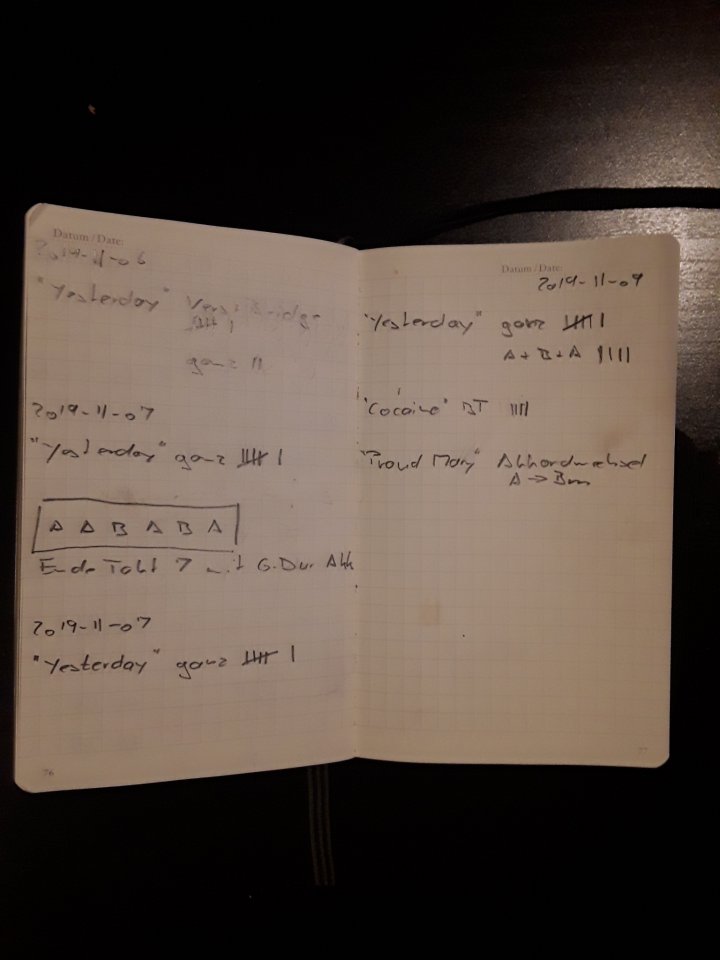 Datum / Date:
2019-11-06
"Yesterday" Vers + Bridge
|||| |
ganz ||
2019-11-07
"Yesterday" ganz |||| |
A A B A B A
Ende Takt 7 mit G-Dur Akk
2019-11-07
"Yesterday" ganz |||| |
76
Datum / Date:
2019-11-09
"Yesterday" ganz |||| |
A + B + A ||||
"Cocaine" BT ||||
"Proud Mary" Akkordwechsel
A → Bm
77